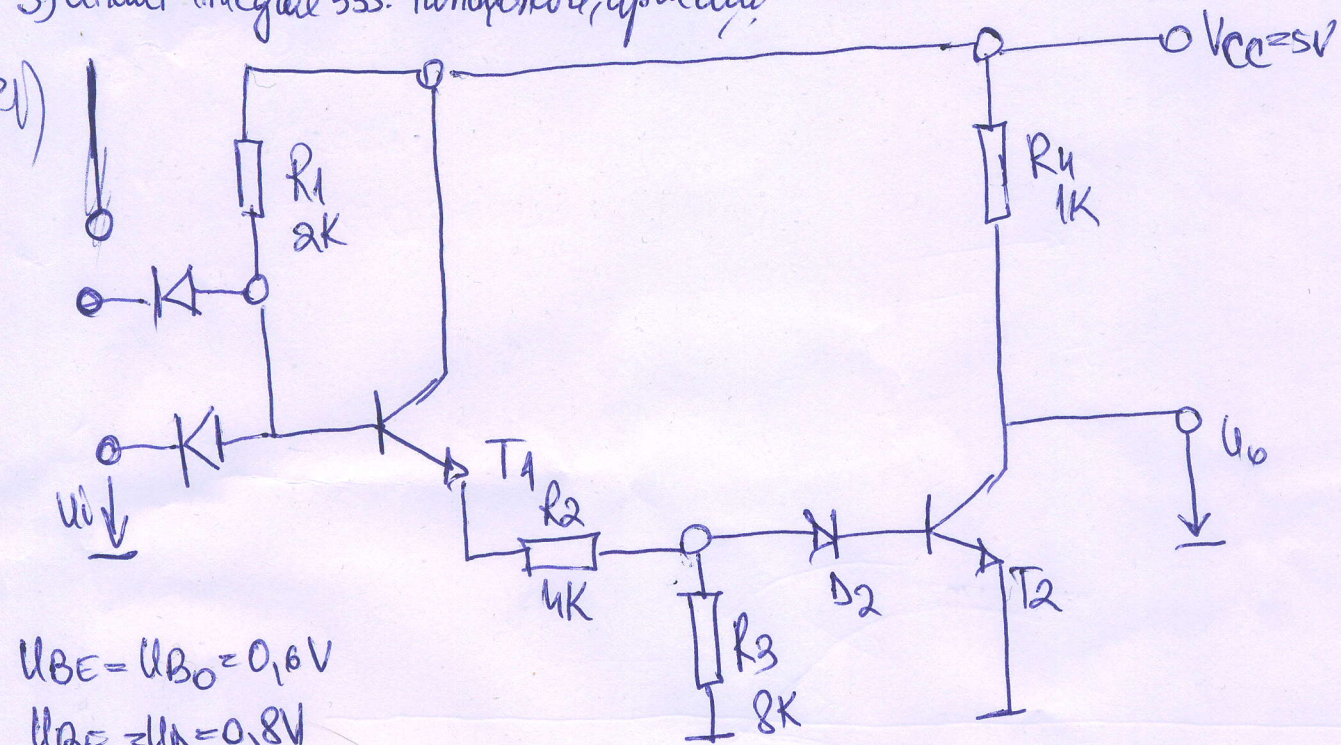 555.
VCC=5V
R1
2K
R4
1K
T1
Ui
R2
4K
D2
T2
U0
R3
8K
UBE=UB0=0,6V
UBE=UD=0,8V